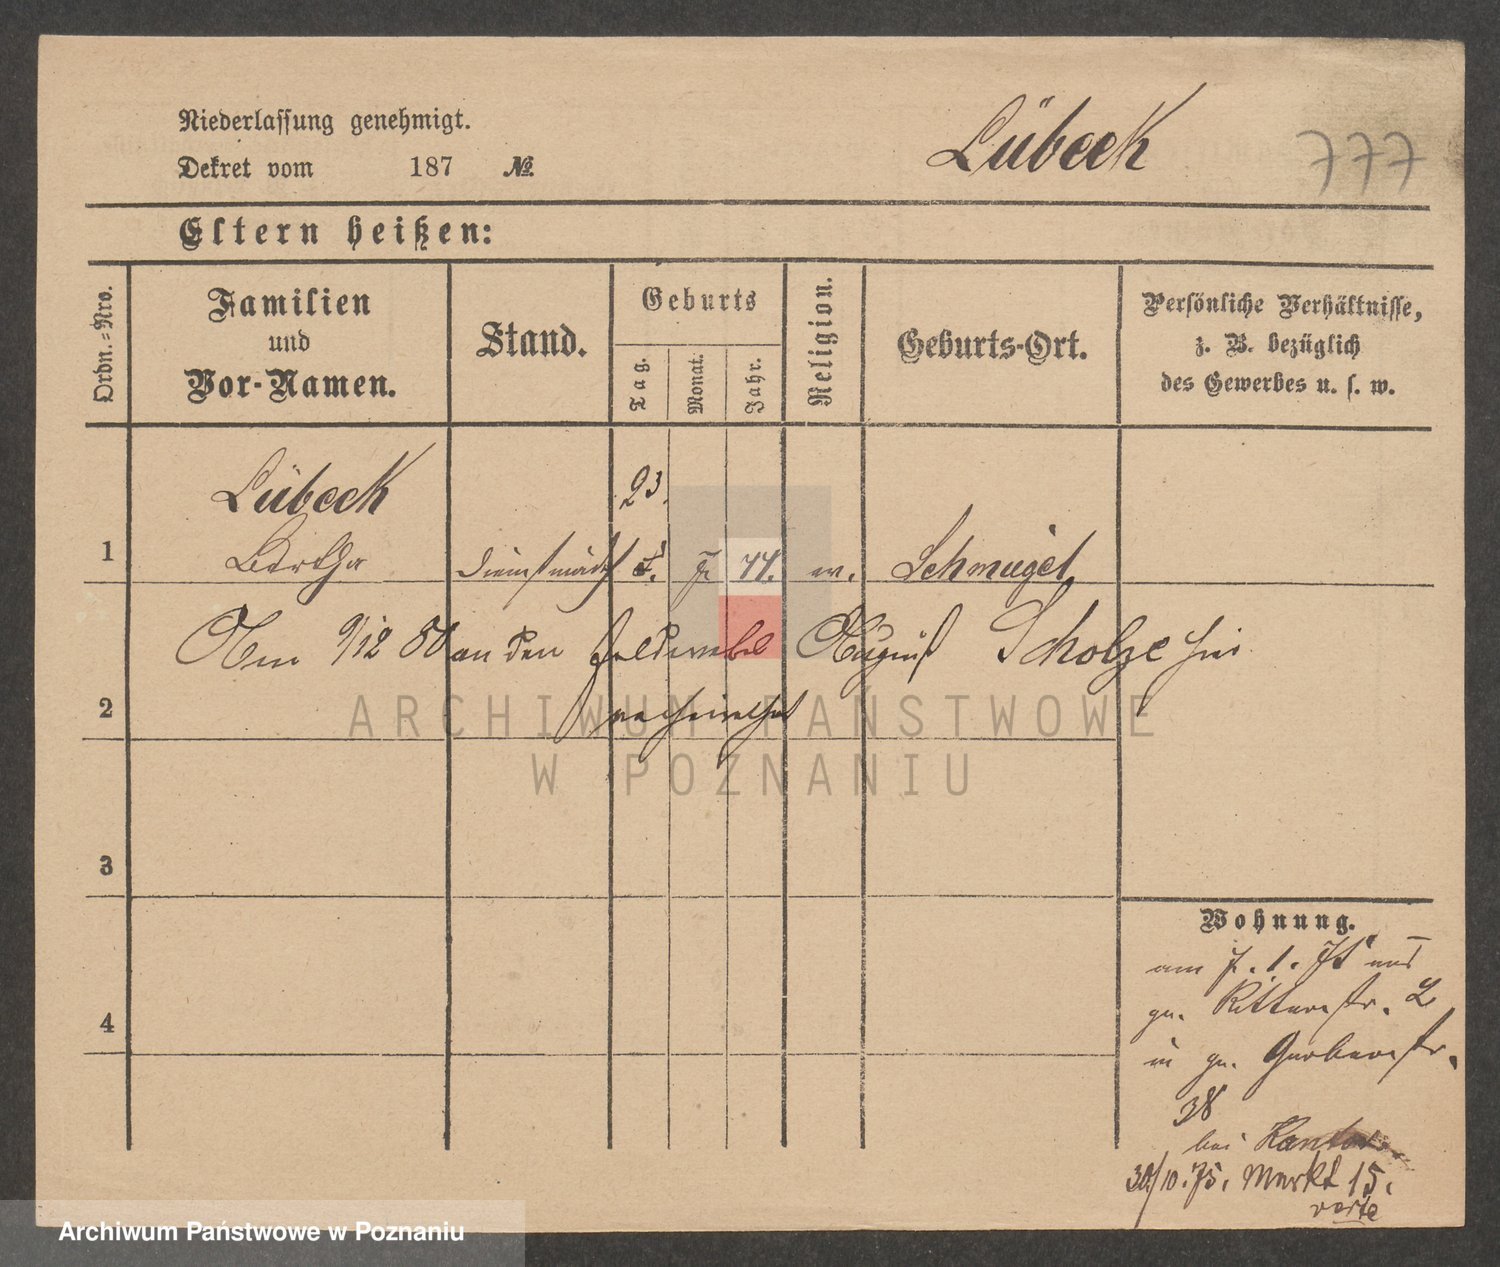 Niederlassung genehmigt.
Dekret vom 187 №
Lübeck
777
Eltern heißen:
Ordn.-Nro.
Familien
und
Vor-Namen.
Stand.
Geburts
Tag.
Monat.
Jahr.
Religion.
Geburts-Ort.
Persönliche Verhältnisse,
z. B. bezüglich
des Gewerbes u. s. w.
Lübeck
23.
1
Bertha
Schmiegel
an den Feldwebel August Scholze hier
2
verheirathet
3
4
Wohnung.
am
Ritterstr. 2
in gr. Gerberstr.
38
bei
30/10.75. Markt 15.
verte
ARCHIWUM PAŃSTWOWE
W POZNANIU
Archiwum Państwowe w Poznaniu